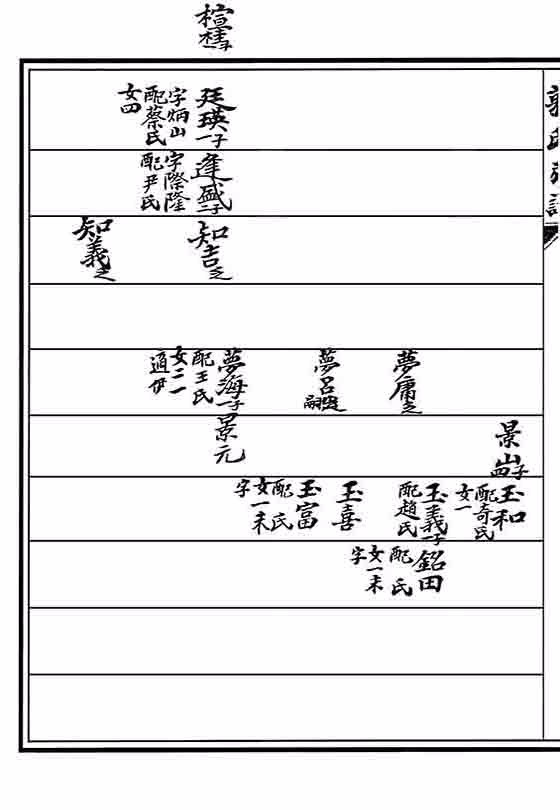 廷瑛一子
字炳山
配蔡氏
女四
逢盛二子
字際隆
配尹氏
知吉乏
知義乏
夢庸乏
夢呂
夢海一子
配王氏
女二一
適伊
景山四子
景元
玉和
配奇氏
女一
玉義一子
配趙氏
玉喜
玉富
配 氏
女一未
字
銘田
配 氏
女一未
字